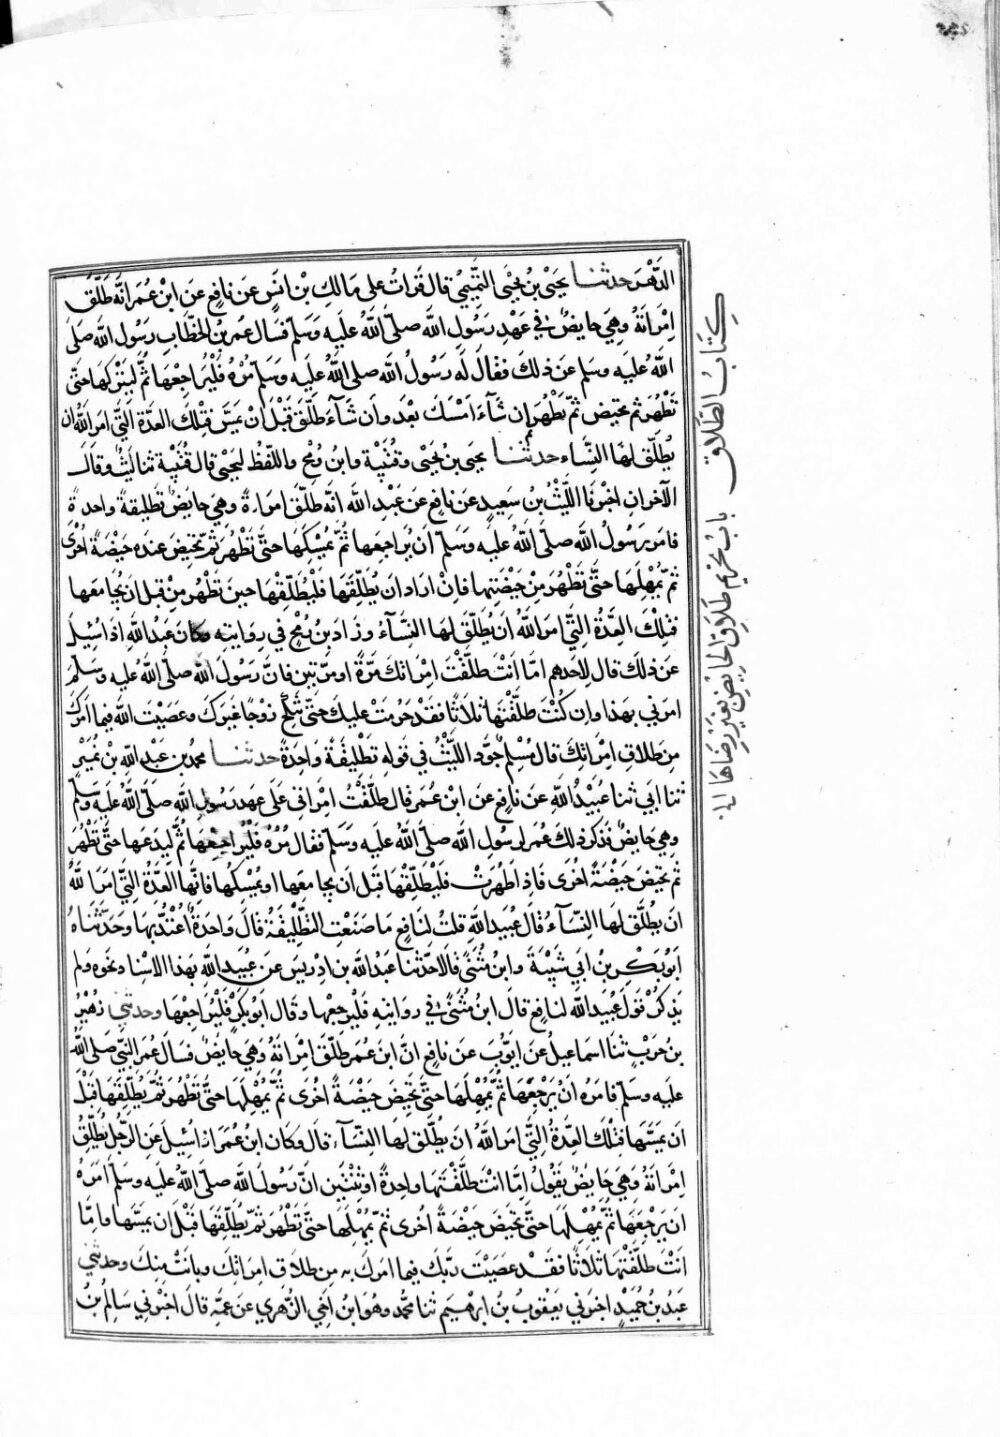 الدَّهْرَ حدثنا يَحْيَى بْنُ يَحْيَى التَّمِيمِيُّ قال قَرَأتُ على مَالِكِ بْنِ أنَسٍ عَن نَافِعٍ عَن ابْنِ عُمَرَ انَّهُ طَلَّقَ
اِمْرَاتَهُ وهِيَ حايِضٌ في عَهْدِ رسُولِ اللَّه صلّى اللَّهُ عليه وسَلّم فسَال عمر بن الخطَّابِ رسُولَ اللَّه صَلى
اللَّهُ عليه وسلم عن ذلكَ فقالَ لَه رَسُولُ اللَّه صلى اللَّهُ عليه وسَلم مُرْهُ فَلْيُرَاجِعْهَا ثُمَّ ليَتْركهَا حَتّى
تَطْهُرَ ثم تحيضَ ثمّ تَطْهُرَ ثم اِن شَآءَ امْسَكَ بعدُ وان شَآءَ طَلَّقَ قَبْلَ انْ يَمَسَّ فتِلْكَ العدّةُ الَّتي امَرَ اللَّهُ ان
يُطَلَّقَ لَهَا النّسَاء حدثنا يحيى بن يَحْيَى وقُتَيْبَة وابن رمْحٍ واللّفْظ ليَحْيى قال قُتَيْبَة ثنا لَيْثٌ وقال
الآخران اخْبرنَا اللَّيْثُ بنُ سَعيدٍ عَن نَافِعٍ عَن عَبْدِ اللَّه انّه طَلّقَ امرَاةً وهي حَايِضٌ تَطليقةً واحدةً
فامَرَ رَسُولُ اللَّه صلّى اللَّهُ عليه وسَلّم أن يُراجعَها ثُمَّ يُمْسِكَها حتّى تَطْهُرَ ثم تحيضَ عنده حَيْضَةً اخْرَى
ثُمّ يُمْهِلَهَا حَتّى تَطْهُرَ مِنْ حَيْضَتِها فاِنْ ارَادَ ان يُطَلِّقَهَا فَلْيُطَلِّقْهَا حينَ تَطْهُرُ مِنْ قبل ان يُجَامعَها
فتِلْكَ العِدَّةُ الّتي امَرَ اللَّهُ ان يُطَلَّقَ لهَا النِّسَآءُ وَزَادَ بنُ رُمْحٍ في رِوَايتِه وكانَ عَبْدُ اللَّهِ اذا سُئِلَ
عَن ذلكَ قال لِاَحَدِهِم امّا اَنْتَ طَلَّقْتَ امْرَاتَكَ مَرّةً او مرّتَيْنِ فانّ رَسُولَ اللَّه صلّى اللَّهُ عليه وسَلّم
امرني بِهَذا وان كُنْتَ طَلّقْتَهَا ثَلاثًا فَقَدْ حَرُمَتْ عليكَ حتّى تَنْكِحَ زَوْجًا غيرَكَ وعَصَيْتَ اللَّه فيما امَرَكَ
مِن طَلاقِ امْرَاتِكَ قال مُسْلِمٌ جَوَّدَ اللَّيْثُ في قَولِه تَطْليقَةً واحِدةً حدثنا محمد بن عبد اللَّهِ بن نُمَيْرٍ
ثنا ابي ثنا عُبَيْدُ اللَّه عَن نافِعٍ عَن ابْن عمَرَ قال طلَّقْتُ امْرَاتي عَلَى عَهد رَسُولِ اللَّه صَلّى اللَّهُ عليه وسَلّم
وهي حَايِضٌ فذكرَ ذلكَ عُمَرُ لرسُولِ اللَّه صَلّى اللَّهُ عليه وسَلّم فقال مُرْهُ فَلْيُرَاجِعْهَا ثُمَّ ليَدَعْها حتّى تَطْهُرَ
ثم تحيضَ حَيْضَةً اُخْرَى فَاِذا طهُرَت فليُطَلِّقْهَا قَبْلَ اَن يُجَامعَها او يُمْسِكْها فانَّها العدّةُ الَّتي امَرَ اللَّهُ
ان يُطَلَّق لهَا النِّسَآءُ قال عُبَيد اللَّهِ قلتُ لنَافِعٍ ما صنَعْتِ التَّطْلِيقَةُ قالَ وَاحِدَةٌ اُعْتُدَّ بهَا وحَدَّثنَاهُ
ابُو بَكْرِ بن ابي شَيْبَةَ وابن مُثَنَّى قَالا حدّثنا عبدُ اللَّه بن اِدْرِيسَ عَن عُبيد اللَّهِ بهَذا الاسْنَادِ نحوه ولم
يذكرْ قَولَ عُبيد اللَّه لنافعٍ قالَ ابنُ مُثَنَّى في رِوايتِه فلْيَرجعْها وقال أبو بكر فَلْيُرَاجِعهَا وحدثني زُهَيْرُ
بن حَرْبٍ ثنا اسماعيلُ عن ايّوبَ عن نافِعٍ انّ ابن عمر طلّقَ اِمْرَاتَهُ وهي حَايِضٌ فسَال عمَرُ النَّبيّ صلى اللَّهُ
عليه وسلّم فامَرَهُ انْ يَرْجِعَهَا ثمّ يُمْهِلَهَا حتّى تَحِيضَ حَيْضَةً اُخْرَى ثُمّ يُمْهِلَها حتّى تَطْهُرَ ثُمَّ يُطَلِّقَهَا قَبْلَ
ان يَمَسّهَا فتِلْكَ العِدَّةُ الّتي امَرَ اللَّهُ ان يُطَلَّقَ لهَا النِّسَآءُ قالَ وكان ابنُ عُمَرَ اذا سُئِلَ عَن الرّجُلِ يُطَلِّقُ
اِمْرَاتَهُ وهيَ حَايِضٌ يقُولُ اِمّا انْتَ طَلَّقْتَهَا واحِدةً اوْ ثِنْتَيْنِ انّ رَسُولَ اللَّه صلى اللَّهُ عليه وسلّم امَرَهُ
ان يَرْجِعَهَا ثُمّ يُمْهِلَهَا حتّى تحِيضَ حَيْضَةً اُخْرى ثمّ يُمْهِلَهَا حتّى تَطْهُرَ ثُمّ يُطَلِّقَهَا قَبْلَ اِن يمَسّها وامّا
انْتَ طلّقْتَهَا ثَلاثًا فقَدْ عصَيْتَ ربّكَ فيما امَركَ به من طلاق امراتكَ وبانَتْ مِنكَ وحدثني
عَبْدُ بن حُمَيْدٍ اخبرني يَعْقُوبُ بن ابْرهِيمَ ثنا محمّد وهو ابن اخِي الزّهْري عَن عَمّهِ قال اخبرني سَالم بنُ
كِتَابُ الطَّلَاقِ باب تحريم طَلَاقِ الحَايِضِ بغَيْرِ رِضَاهَا